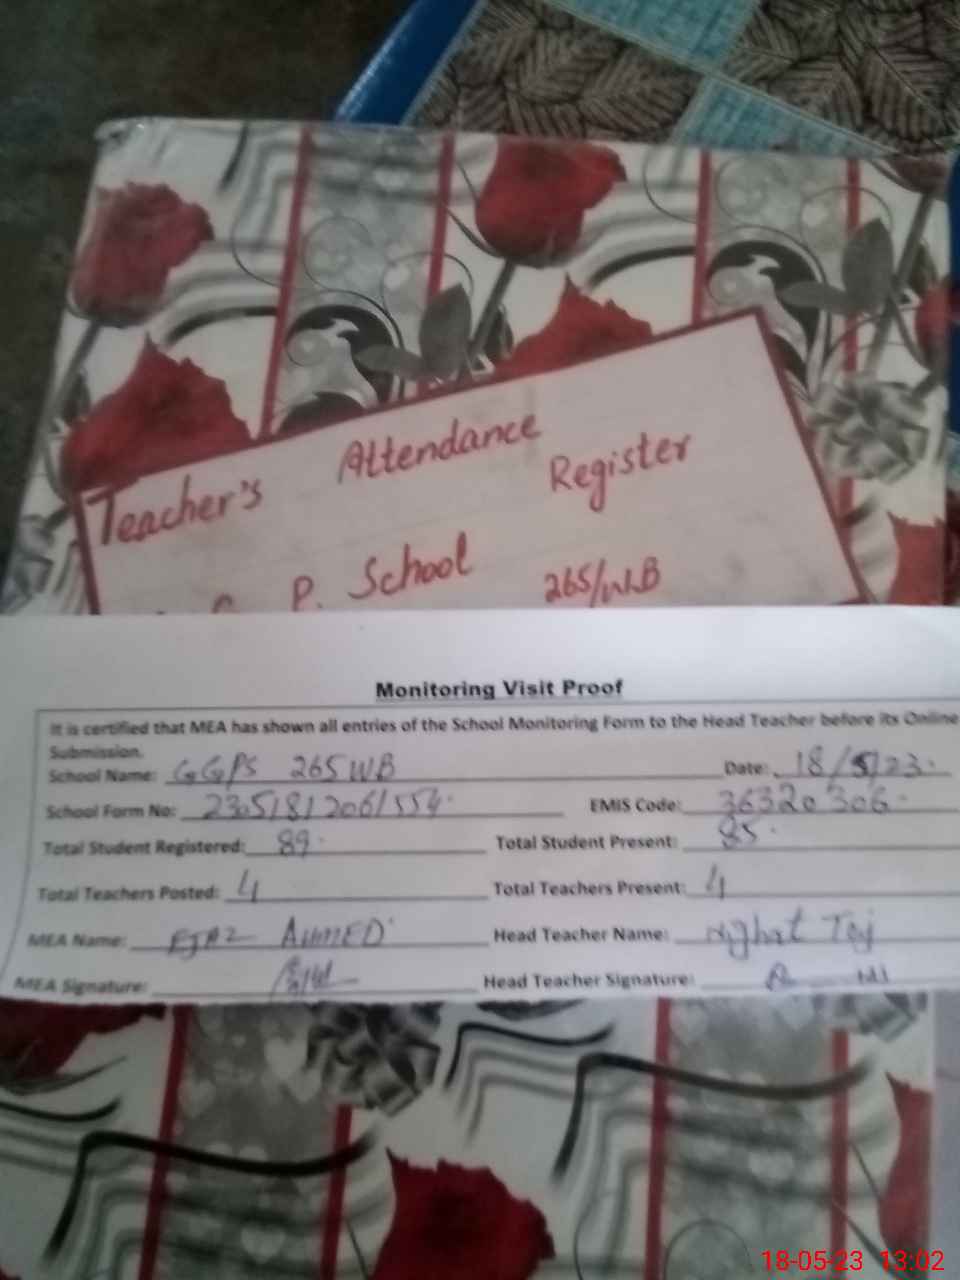 Teacher's Attendance Register
G. P. School 265/W.B
Monitoring Visit Proof
It is certified that MEA has shown all entries of the School Monitoring Form to the Head Teacher before its Online
Submission.
School Name: GGPS 265 WB Date: 18/5/23
School Form No: EMIS Code: 36320306
Total Student Registered: 89 Total Student Present: 85
Total Teachers Posted: 4 Total Teachers Present: 4
MEA Name: EJAZ AHMED Head Teacher Name: Nighat Taj
MEA Signature: Head Teacher Signature:
18-05-23 13:02